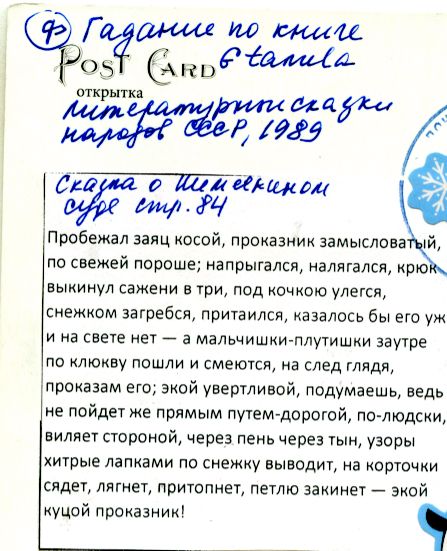 Ф Гадание по книге
POST CARD Etamila
открытка
литературные сказки
народов СССР, 1989
Сказка о Шемякином
суде стр. 84
Пробежал заяц косой, проказник замысловатый,
по свежей пороше; напрыгался, налягался, крюк
выкинул сажени в три, под кочкою улегся,
снежком загребся, притаился, казалось бы его уж
и на свете нет — а мальчишки-плутишки заутре
по клюкву пошли и смеются, на след глядя,
проказам его; экой увертливой, подумаешь, ведь
не пойдет же прямым путем-дорогой, по-людски,
виляет стороной, через пень через тын, узоры
хитрые лапками по снежку выводит, на корточки
сядет, лягнет, притопнет, петлю закинет — экой
куцой проказник!